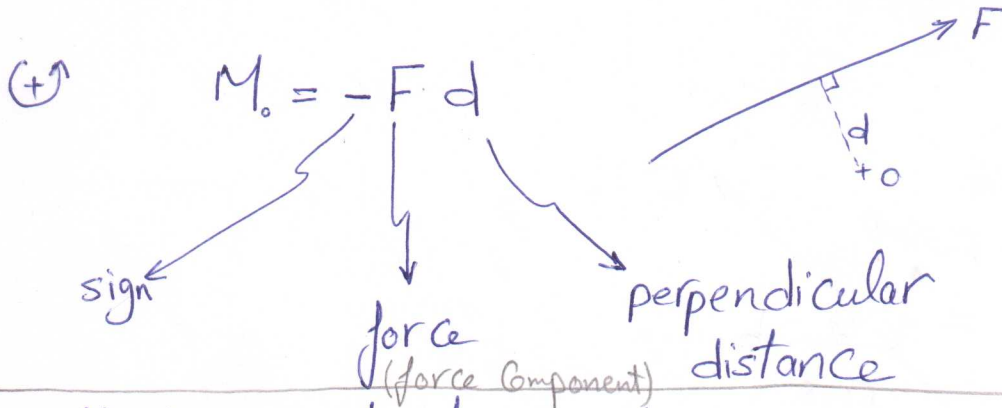 + M₀ = - F d
F
d
+ O
sign
force
(force Component)
perpendicular
distance